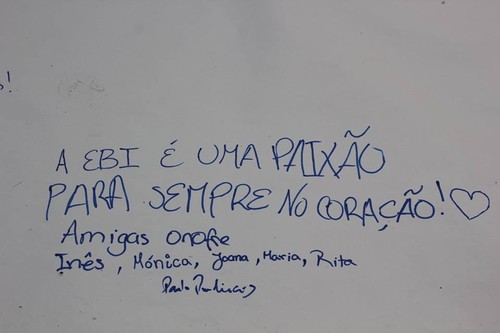 !
A EBI É UMA PAIXÃO
PARA SEMPRE NO CORAÇÃO! ♡
Amigas onofre
Inês, Mónica, Joana, Maria, Rita
Paulo